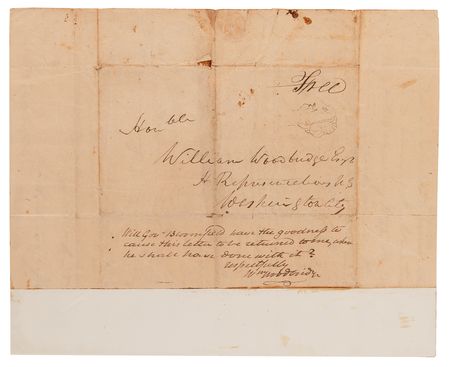 Free
Hon ble
William Woodbridge Esqr
H. Representatives U S
Washington City
Will Gov. Bloomfield have the goodness to
cause this letter to be returned to me, when
he shall have done with it?
respectfully
Wm Woodbridge